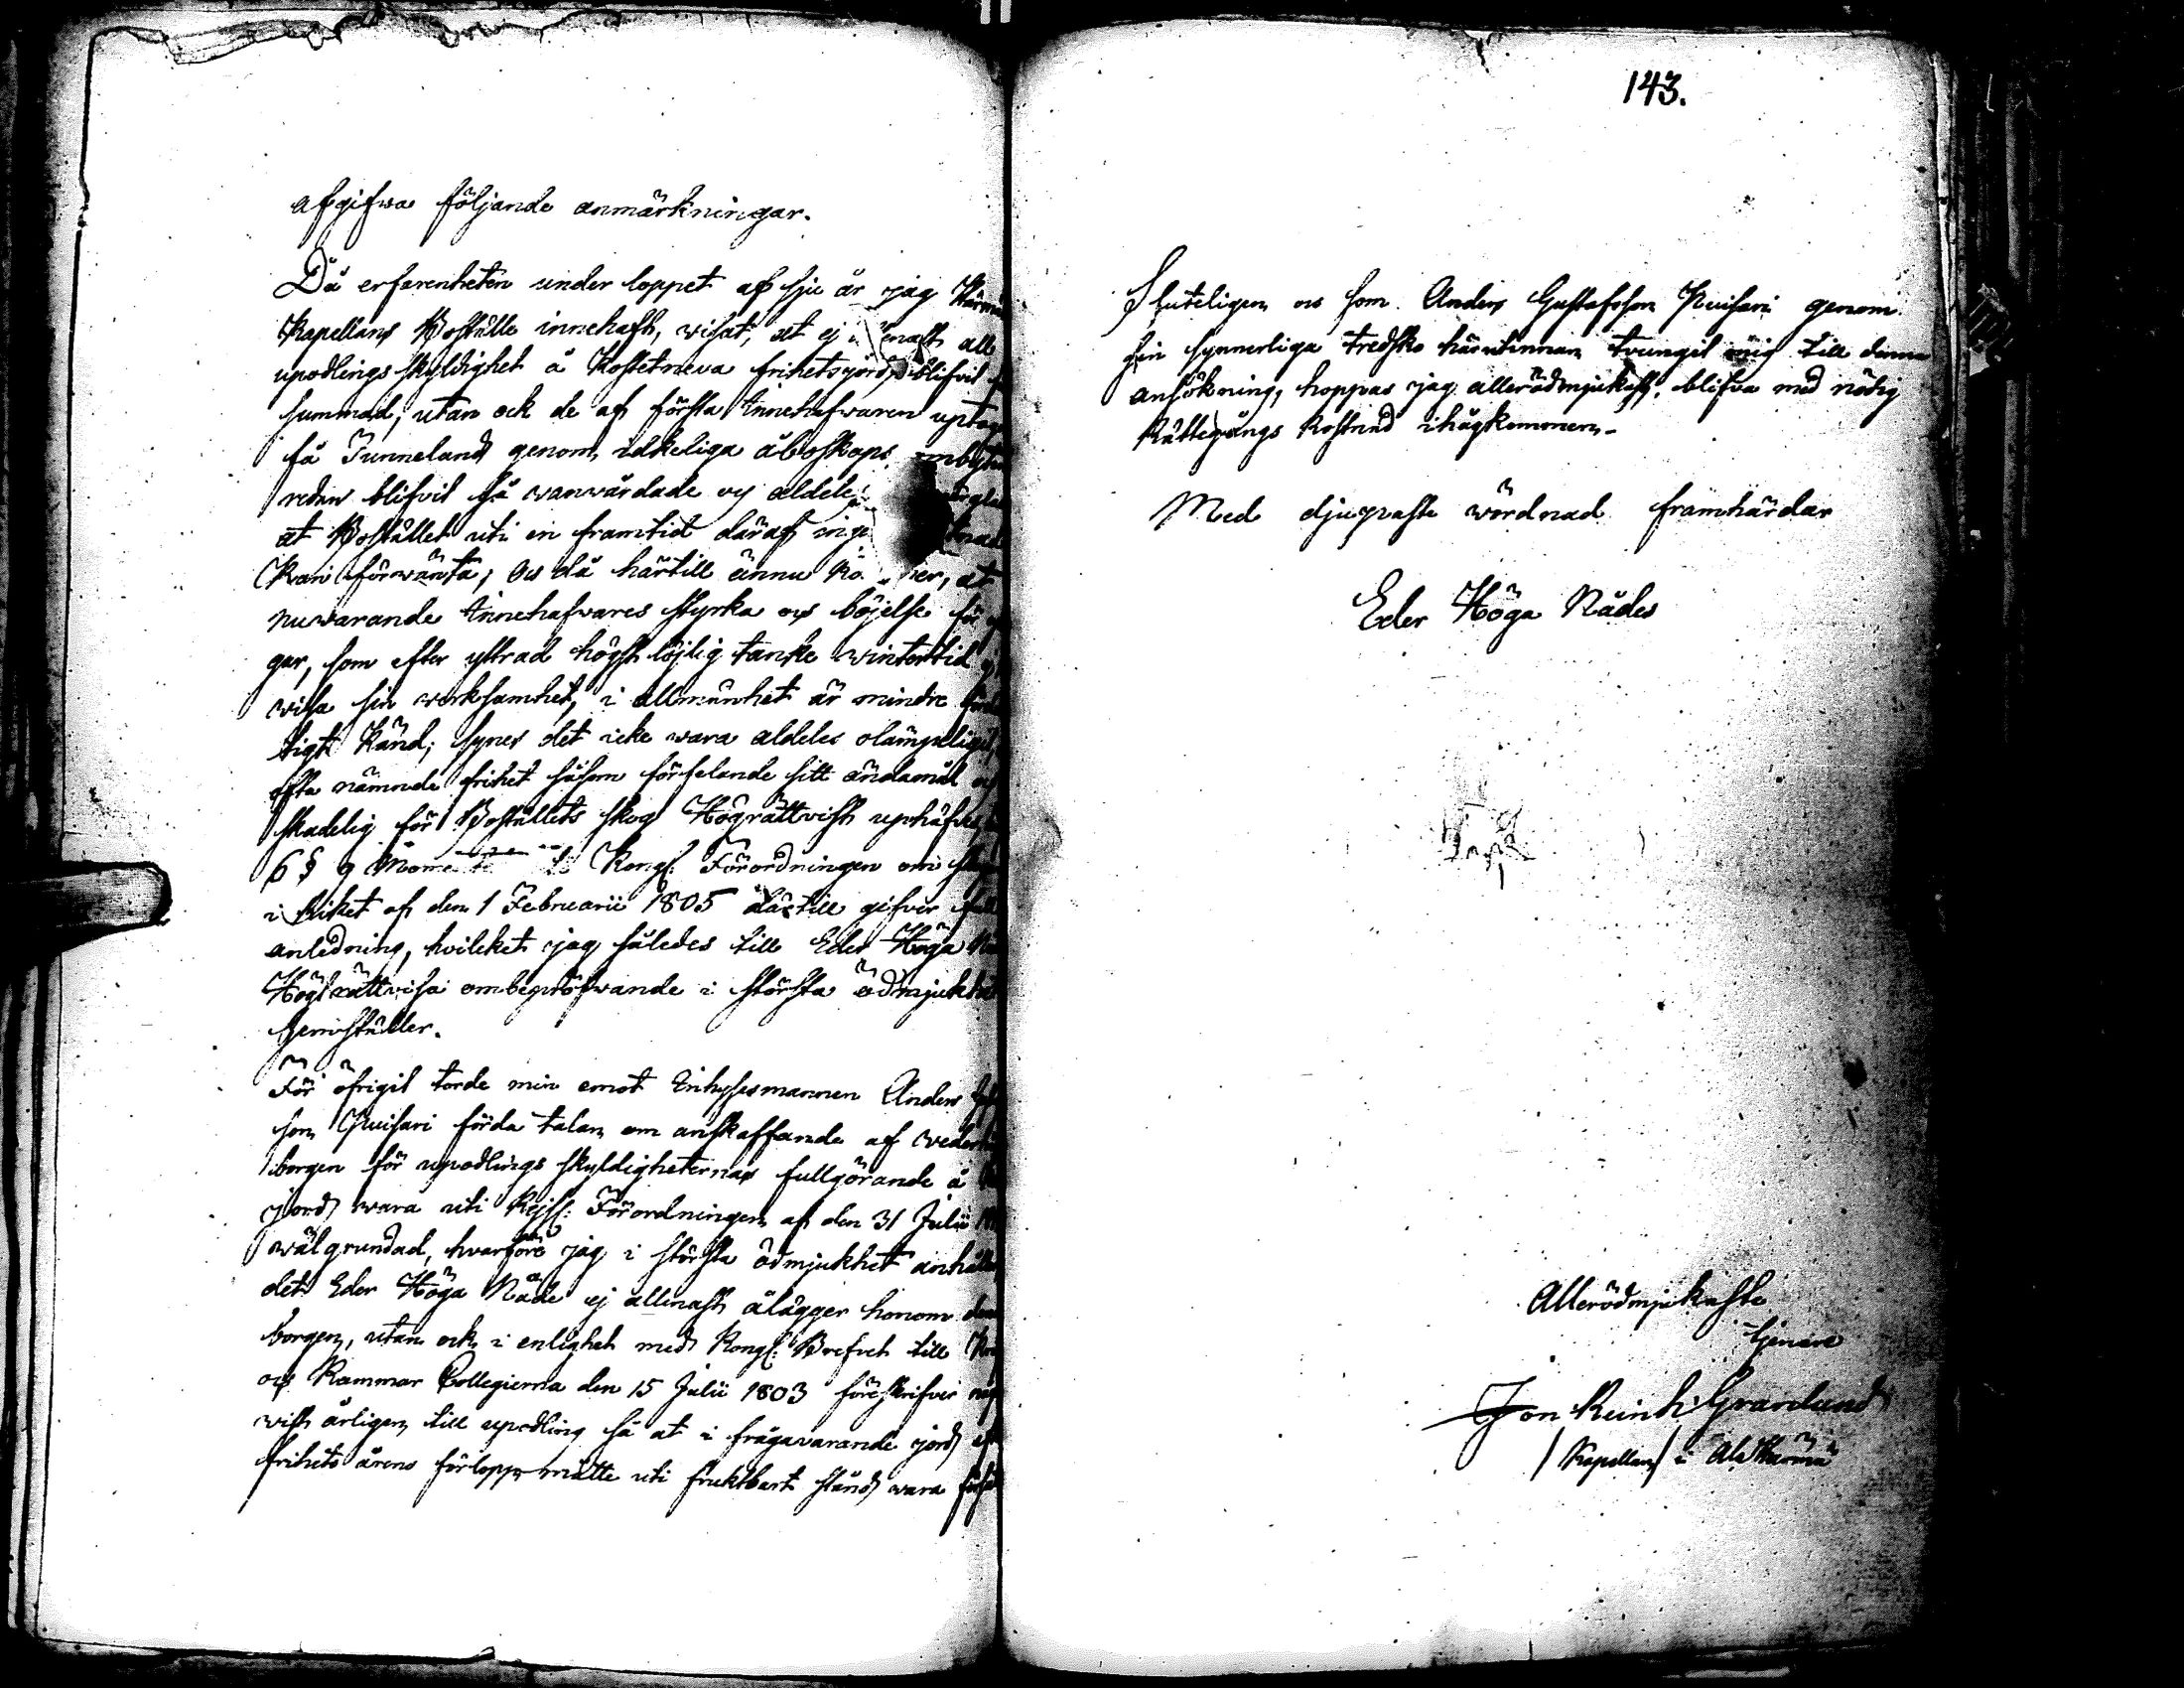 afgifwa följande anmärkningar.
Då erfarenheten under loppet af sju år jag Härmä
Kapellans Boställe innehaft, wisat, at ej allenast all
upodlings skyldighet å Kostetneva frihetsjord blifvit
summad, utan ock de af första Innehafwaren uptagne
få Tunneland genom idkeliga åboskaps ombyten
redan blifvit så wanwårdade och aldeles
at Bostället uti en framtid däraf inge
kan förwänta; och då härtill ännu kommer, at
nuwarande Innehafwares styrka och böjelse för
gar, som efter yttrad högst löjlig tanke wintertid
wisa sin werksamhet, i allmänhet är mindre
tigt känd; synes det icke wara aldeles olämpligit,
ofta nämnde frihet såsom förfelande sitt ändamål och
skadelig för Boställets skog Högrättvist uphäfves
6 § 9 Momentet Kongl: Förordningen om
i Riket af den 1 Februarii 1805 därtill gifver full
anledning, hvilcket jag således till Eder Höga
Högsträttvisa ombepröfwande i största ödmjukhet
hemställer.
För öfrigit torde min emot Enhyssesmannen Anders
son Puisari förda talan om anskaffande af
borgen för upodlings skyldigheternas fullgörande å
jord wara uti Kejs: Förordningen af den 31 Julii
wälgrundad, hvarföre jag i största ödmjukhet anhåller,
det Eder Höga Nåde ej allenast ålägger honom
borgen, utan ock i enlighet med Kongl: Brefvet till
och Kammar Collegierna den 15 Julii 1803 föreskrifver
wist årligen till upodling så at i frågavarande jord
frihets årens förlopp måtte uti fruktbart stånd wara
143.
Sluteligen och som Anders Gustafsson Puisari genom
sin synnerliga tredsko härutinnan tvungit mig till denna
ansökning, hoppas jag allerödmjukast, blifva med nödig
Rättegångs kostnad ihågkommen.
Med djupaste wördnad framhärdar
Eder Höga Nådes
Allerödmjukaste
tjenare
Jon Reinh: Granlund
/ Kapellan / i Ala Härmä